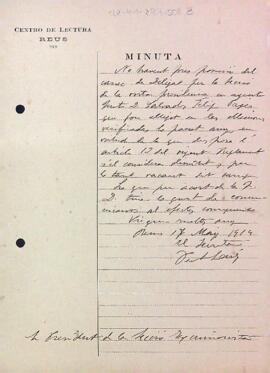 CENTRO DE LECTURA
REUS
MINUTA
No havent pres possesió del
càrrec de Delegat per la Secció
de la
D. Salvador Filip
que fou elegit en les eleccions
verificades la passat any, en
virtut de lo que des posa l'
article 12 del vigent Reglament
se'l considera dimitit y per
lo tant vacant dit càrrec
de que per acort de la J.
D. tinc lo gust de comu-
nicarvos als efectes
Visqueu molts anys
Reus 17 Maig 1919
El Secretari
President de la Secció Excursionista